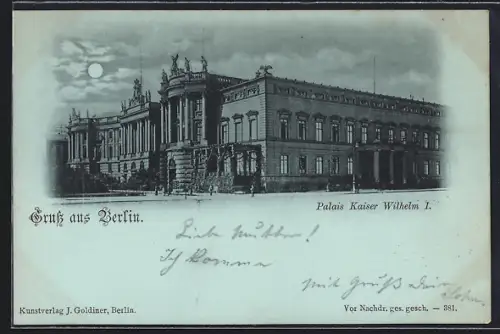 Palais Kaiser Wilhelm I.
Gruß aus Berlin.
Liebe Mutter!
Ich komme
mit Gruß Dein
Sohn
Kunstverlag J. Goldiner, Berlin.
Vor Nachdr. ges. gesch. — 381.